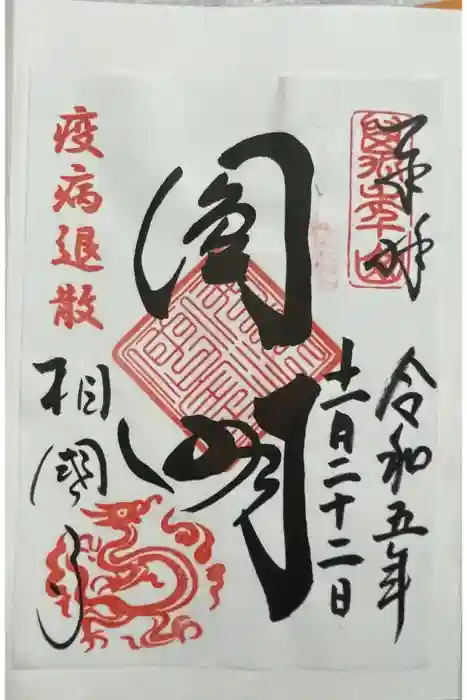 奉拝
令和五年
十一月二十二日
圓明
疫病退散
相國寺